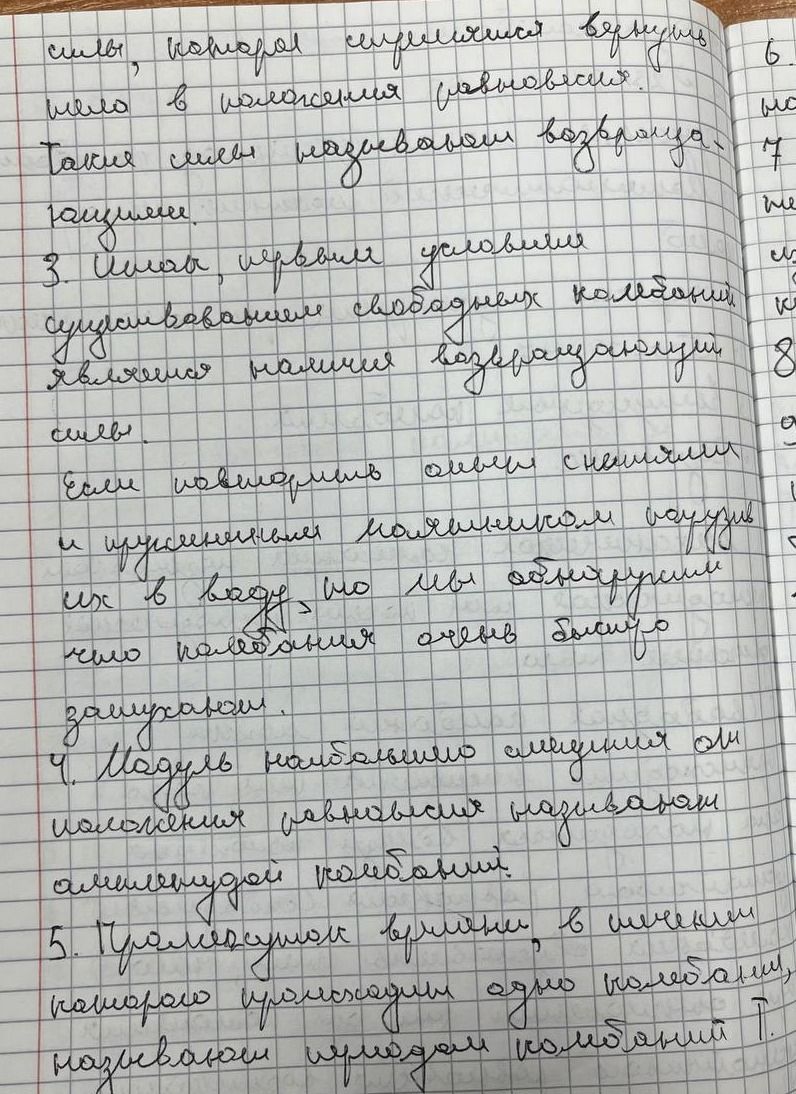 силы, которая стремится вернуть
тело в положения равновесия.
Такие силы называют возвраща-
ющими.
3. Итак, первым условием
существованием свободных колебаний
является наличия возвращающий
силы.
Если повторить опыты с нитями
и пружинным маятником погрузив
их в воду, то мы обнаружим
что колебания очень быстро
затухают.
4. Модуль наибольшего смещения от
положения равновесия называют
амплитудой колебаний.
5. Промежуток времени, в течении
которого происходит одно колебании,
называют периодом колебаний T.
6.
но
7
8